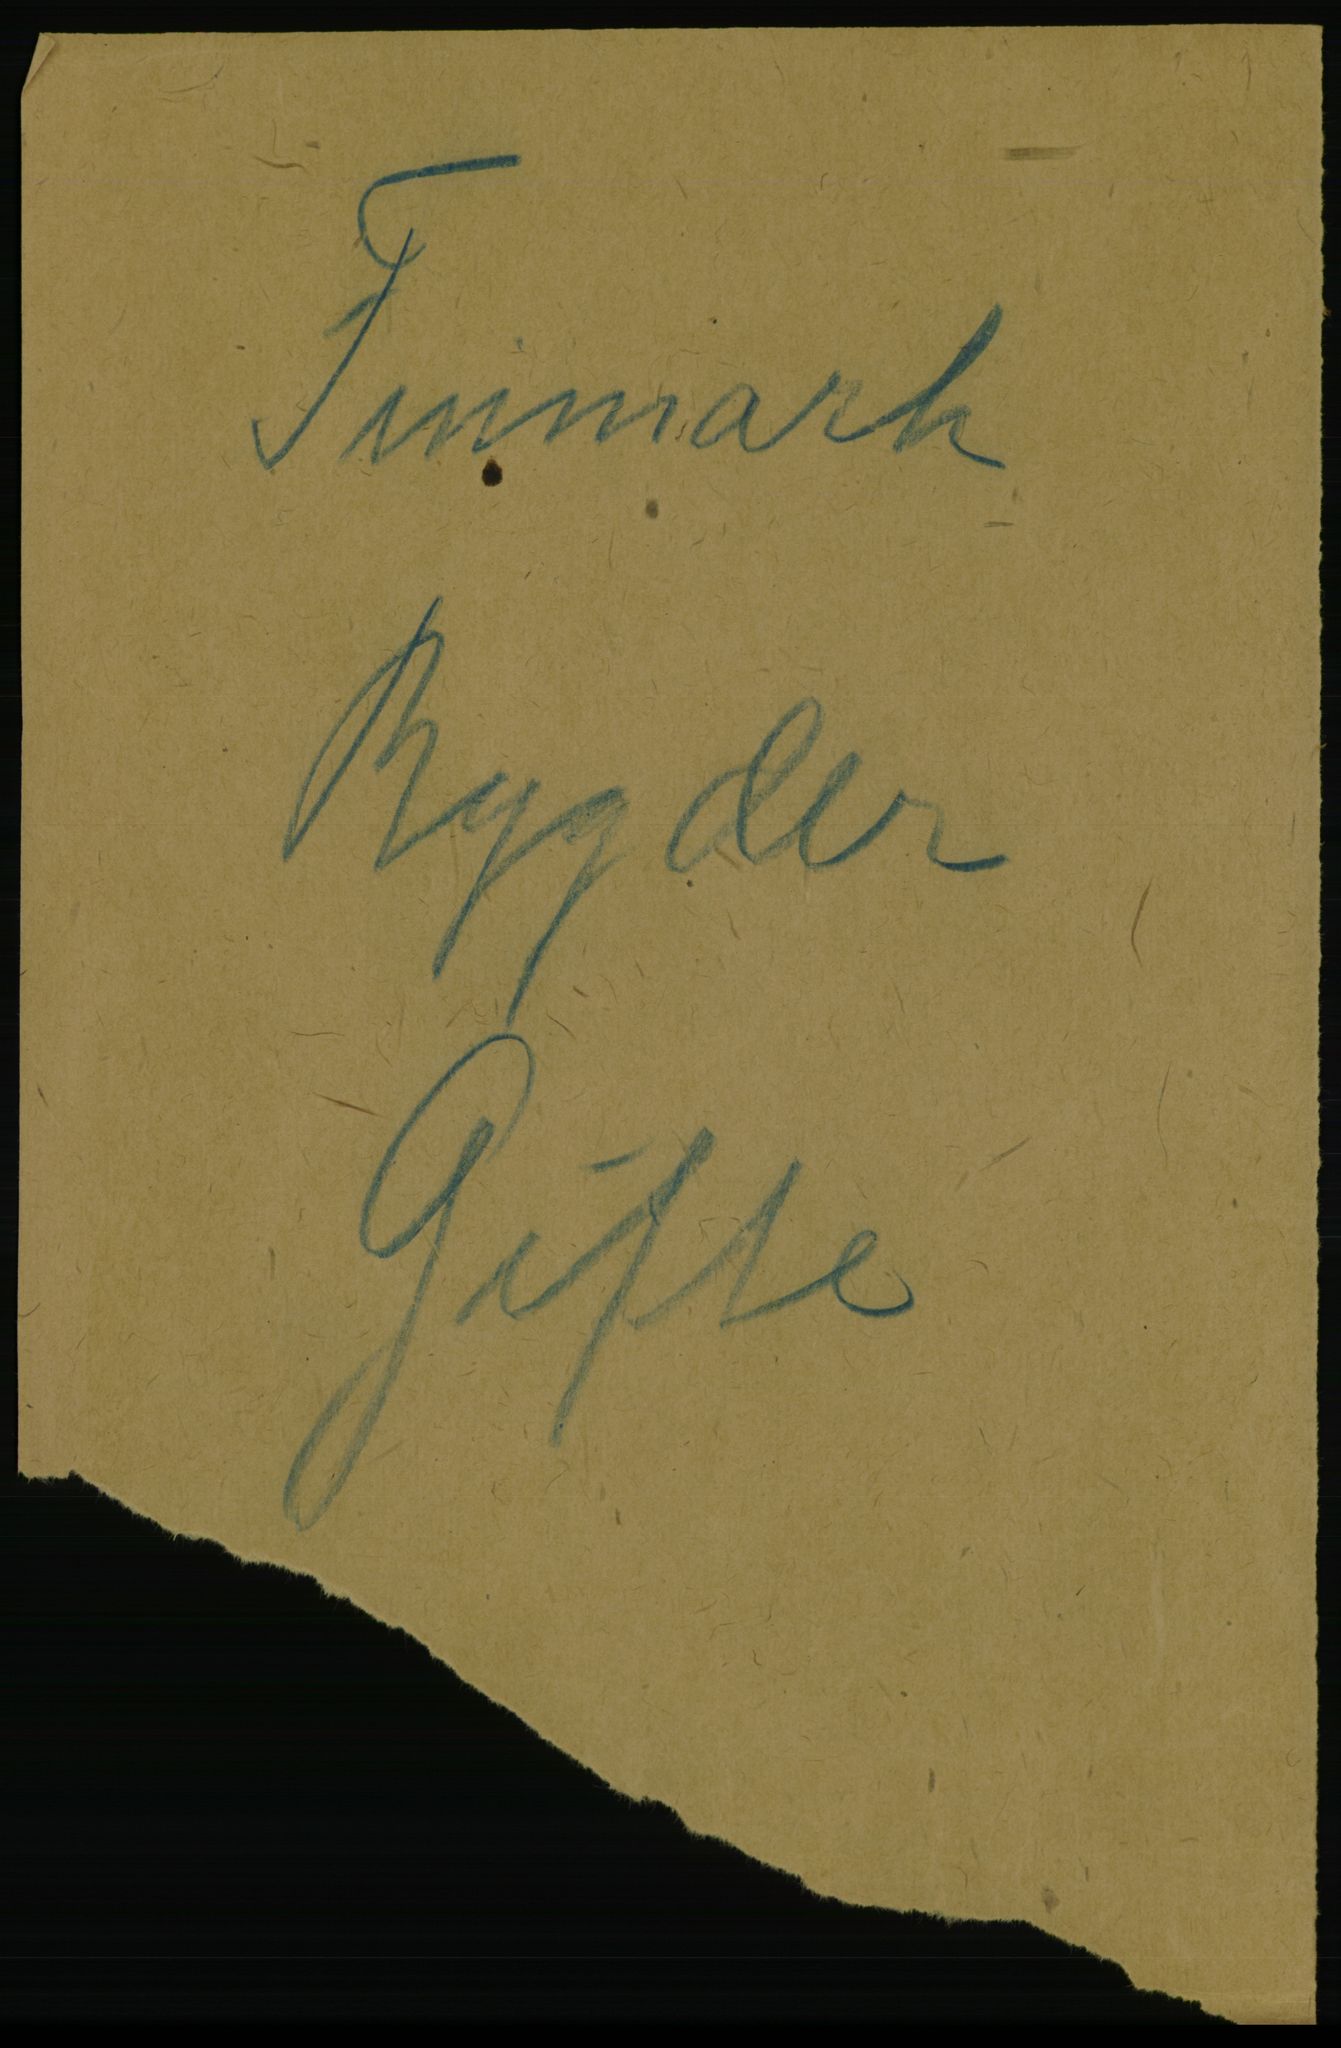 Finmark
Bygder
Gifte